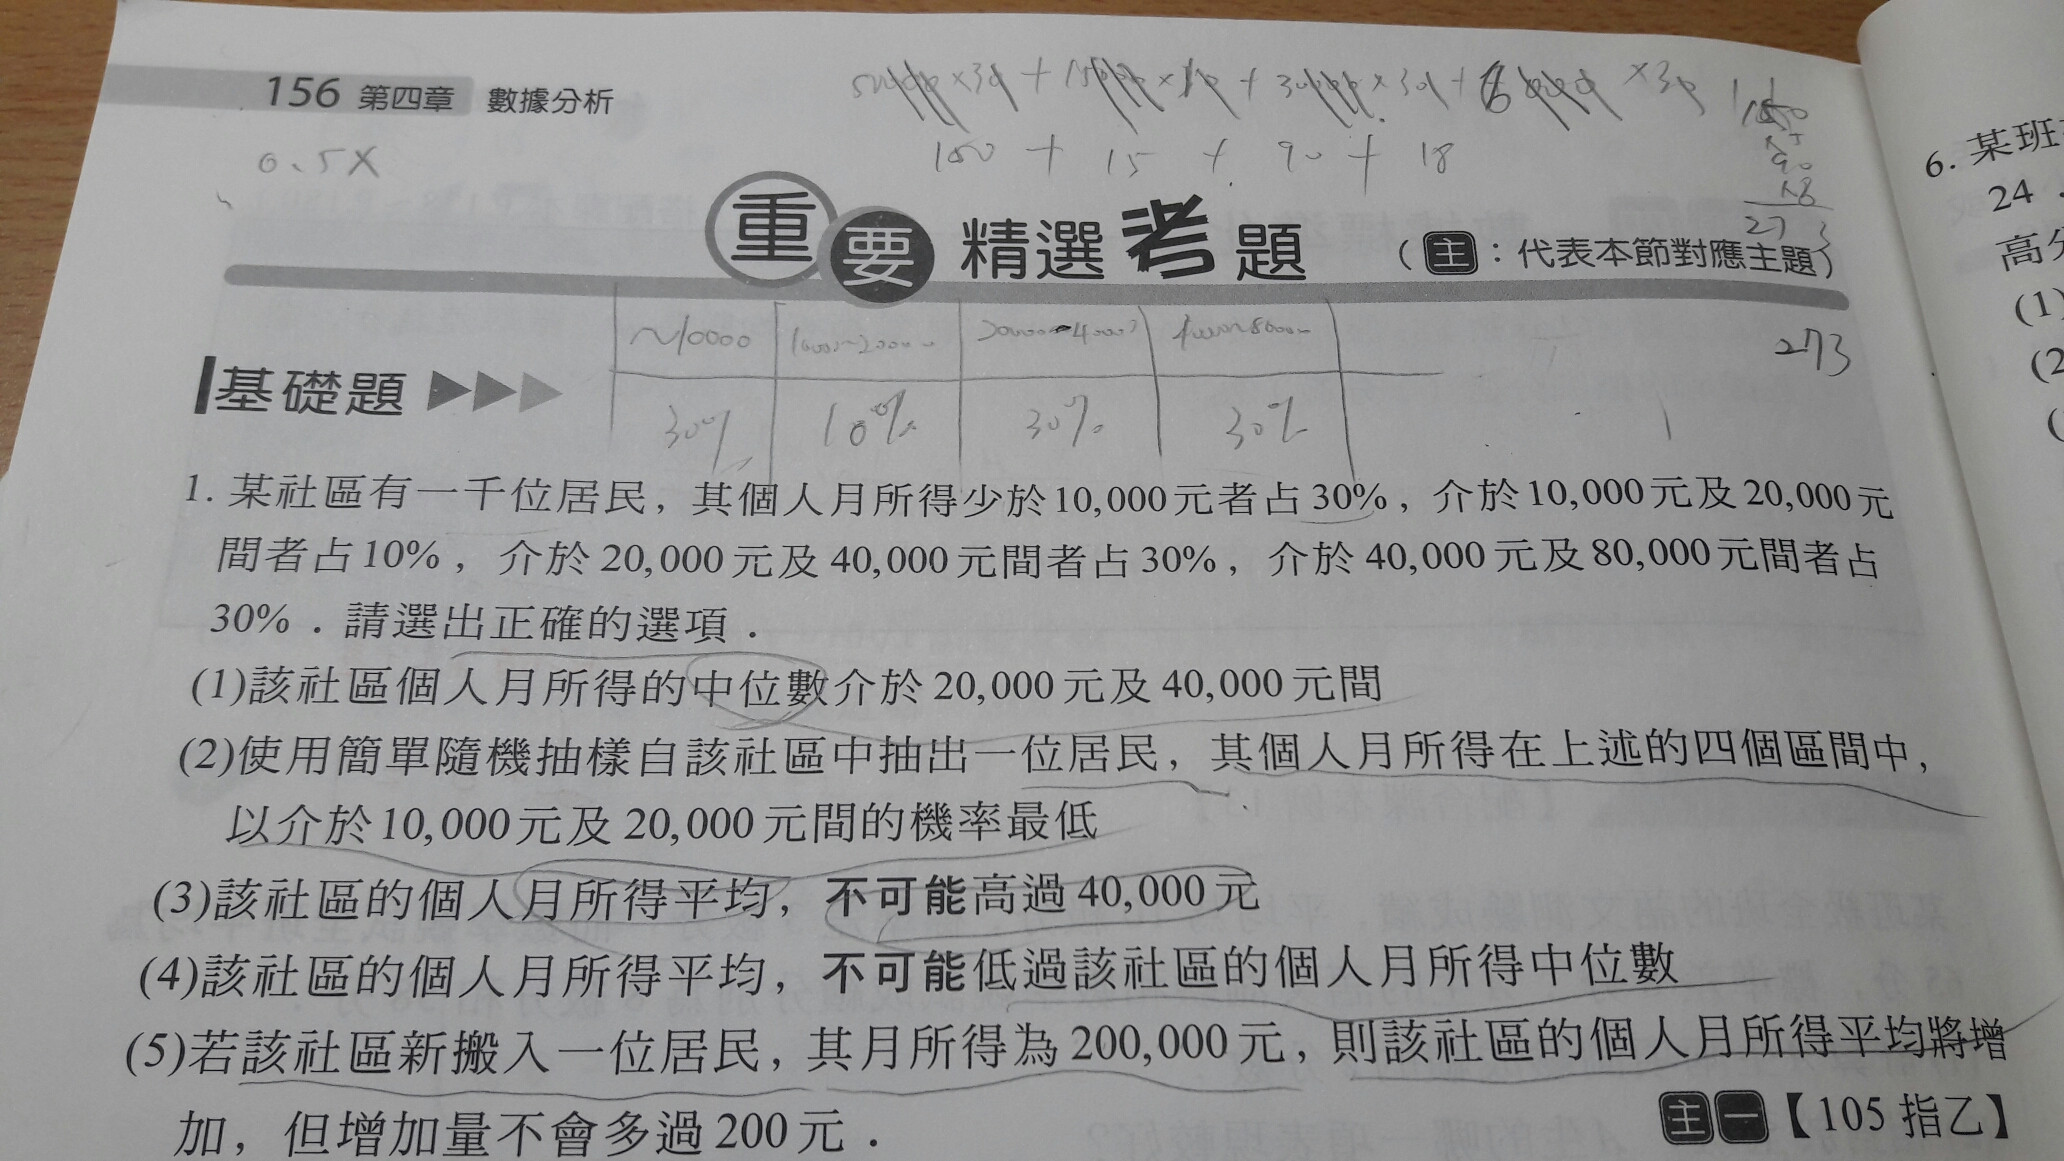 156 第四章 數據分析
0.5X
100 + 15 + 90 + 18
重要精選考題 （主：代表本節對應主題）
273
~10000
30% 10% 30% 30%
基礎題
1. 某社區有一千位居民，其個人月所得少於10,000元者占30%，介於10,000元及20,000元
間者占10%，介於20,000元及40,000元間者占30%，介於40,000元及80,000元間者占
30%．請選出正確的選項．
(1)該社區個人月所得的中位數介於20,000元及40,000元間
(2)使用簡單隨機抽樣自該社區中抽出一位居民，其個人月所得在上述的四個區間中，
以介於10,000元及20,000元間的機率最低
(3)該社區的個人月所得平均，不可能高過40,000元
(4)該社區的個人月所得平均，不可能低過該社區的個人月所得中位數
(5)若該社區新搬入一位居民，其月所得為200,000元，則該社區的個人月所得平均將增
加，但增加量不會多過200元．
主一【105 指乙】
6. 某班
24
高分
(1)
(2
(